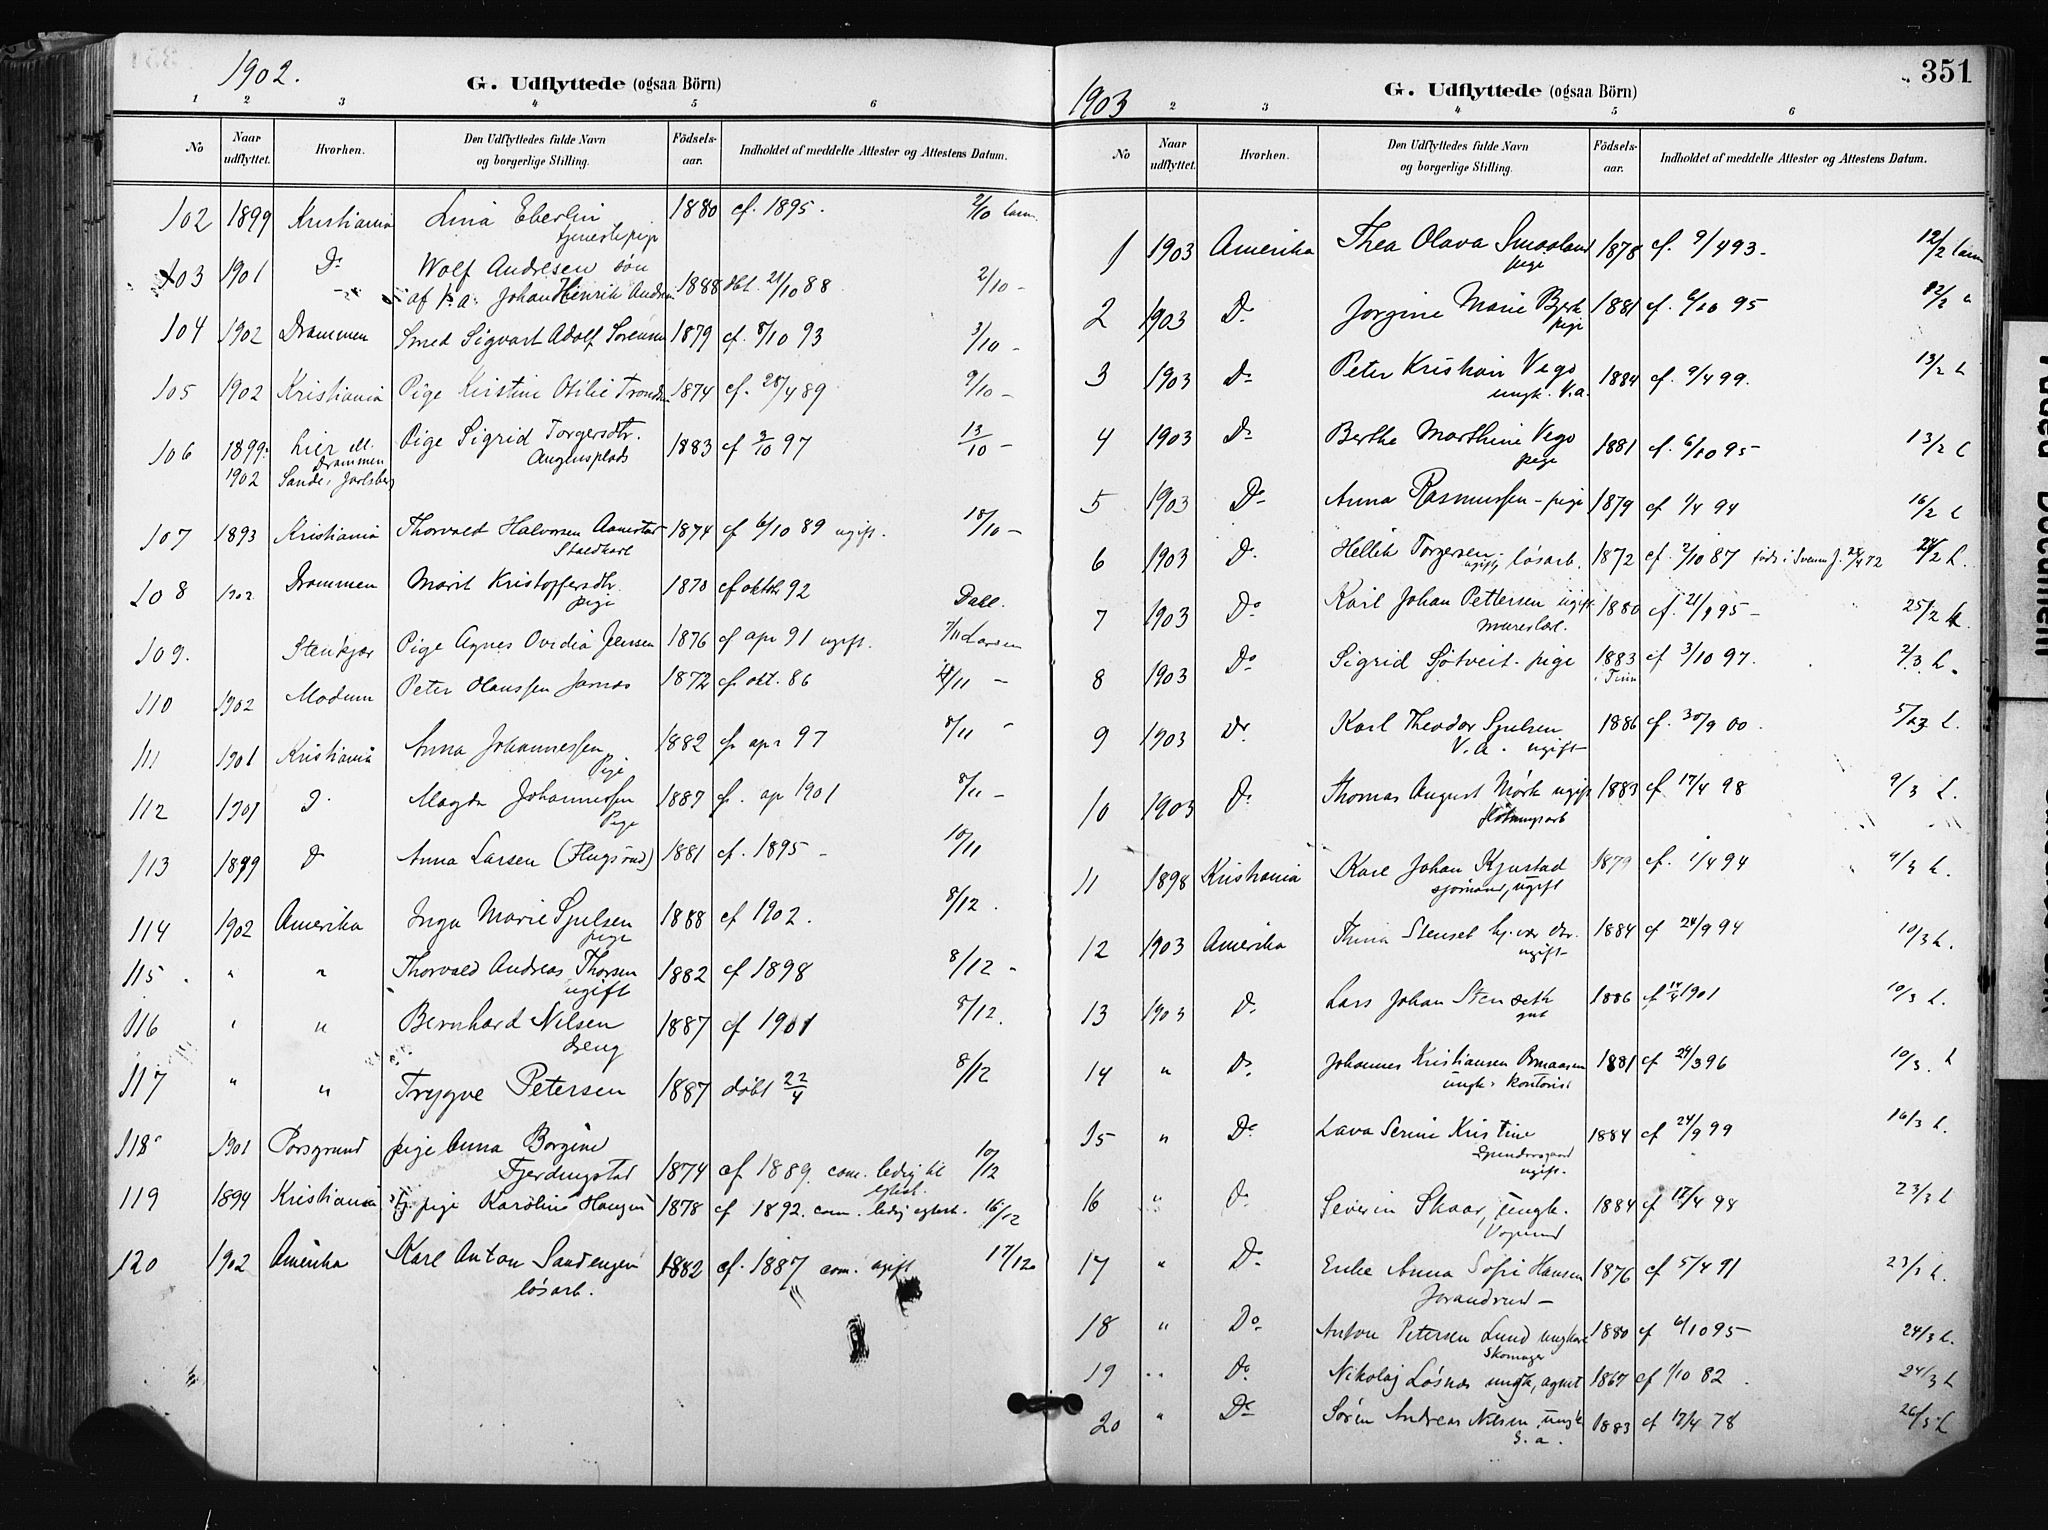 1902.
G. Udflyttede (ogsaa Börn)
1 2 3 4 5 6
No
Naar udflyttet.
Hvorhen.
Den Udflyttedes fulde Navn og borgerlige Stilling.
Födsels-aar.
Indholdet af meddelte Attester og Attestens Datum.
102 1899 Kristiania Lina Eberlin 1880 cf. 1895. 2/10
tjenestepige
103 1901 Do Wolf Andresen søn
af Johan Henrik 1888 dbt. 21/10 88 2/10 -
104 1902 Drammen Smed Sigvart Adolf Sörensen 1879 cf. 8/10 93 3/10 -
105 1902 Kristiania Pige Kristine Otilie 1874 cf. 28/4 89 9/10 -
106 1899- Lier Pige Sigrid Torgersdtr. 1883 cf 3/10 97 13/10 -
Drammen
1902 Sande i Jarlsberg
107 1893 Kristiania Thorvald Halvorsen 1874 cf 6/10 89 ugift. 18/10 -
Staldkarl
108 1902 Drammen Marit Kristoffersdtr. 1870 cf oktbr 92
pige Dahl.
109. Stenkjær Pige Agnes Ovidia Jensen 1876 cf apr 91 ugift. 7/11 Larsen
110 1902 Modum Peter Hanssen 1872 cf. okt. 86 /11 -
111 1901 Kristiania Anna Johannessen 1882 cf apr 97 8/11
Pige
112 1901 D. Magda Johannessen 1887 cf. ap 1901 8/11 -
Pige
113 1899 D Anna Larsen 1881 cf. 1895 - 10/11
114 1902 Amerika Inga Marie 1888 cf 1902. 8/12.
pige
115 " " Thorvald Andreas Thorsen 1882 cf 1898 8/12 -
ugift
116 " " Bernhard Nilsen 1887 cf 1901 8/12.
dreng
117 " " Trygve Petersen 1887 döbt 22/4 8/12
118 1901 Porsgrund pige Anna Borgine
Fjerdingstad 1874 cf 1889. com. ledig til 10/12
119 1894 Kristiania Tj. pige Karoline Haugen 1878 cf 1892. com. ledig 16/12
120 1902 Amerika Karl Anton Sandengen 1882 cf. 1887 com. ugift 17/12
lösarb.
351
1903
G. Udflyttede (ogsaa Börn)
2 3 4 5 6
No
Naar udflyttet.
Hvorhen.
Den Udflyttedes fulde Navn og borgerlige Stilling.
Födsels-aar.
Indholdet af meddelte Attester og Attestens Datum.
1 1903 Amerika Thea Olava Smaaland 1878 cf. 9/4 93 - 12/2
pige
2 1903 Do Jorgine Marie 1881 cf. 6/10 95 12/2
pige
3 1903 Do Peter Kristian Vego 1884 cf. 9/4 99. 13/2 L
ungk. V.a.
4 1903 Do Berthe Marthine Vego 1881 cf. 6/10 95 - 13/2 L
pige
5 1903 Do Anna Rasmussen - pige 1879 cf 1/4 94 16/2 L
6 1903 D. Hellik Torgersen - lösarb. 1872 cf. 2/10 87 24/2 L.
ugift
7 1903 Do Karl Johan Pettersen ugift 1880 cf. 21/ 95 - 25/2 L.
8 1903 Do Sigrid Sjötveit - pige 1883 cf 3/10 97. 2/3 L.
i Tinn
9 1903 Do Karl Theodor 1886 cf. 30/9 00. 5/3 L.
V.a. ugift
10 1903 D. Thomas August Mörk ugift 1883 cf 17/4 98 9/3 L.
11 1898 Kristiania Karl Johan 1879 cf. 1/4 94 9/3 L.
sjömand, ugift
12 1903 Amerika Stenset 1884 cf 24/9 94 10/3 L.
ugift -
13 1903 D. Lars Johan Stenseth 1886 cf 1901 10/3 L.
gut
14 " Do. Johannes Kristiansen 1881 cf 24/3 96 10/3. L
ungk. kontorist
15 " Do Lava Serine Kristine 1884 cf 24/9 99 16/3 L.
ugift.
16 " D. Severin Skaar, ungk. 1884 cf 17/4 98 23/3 L
17 " Do. Enke Anna Sofie Hansen 1876 cf 5/4 91 23/3 L.
18 " Do. Anton Petersen Lund ungkar 1880 cf 6/10 95 - 24/3 L.
Skomager
19 " Do. Nikolaj Lösnes ungk, agent 1867 cf 1/10 82. 24/3 L
20 " Do Sören Andreas Nilsen, ungk 1883 cf 17/4 78 26/3 L
S. a.